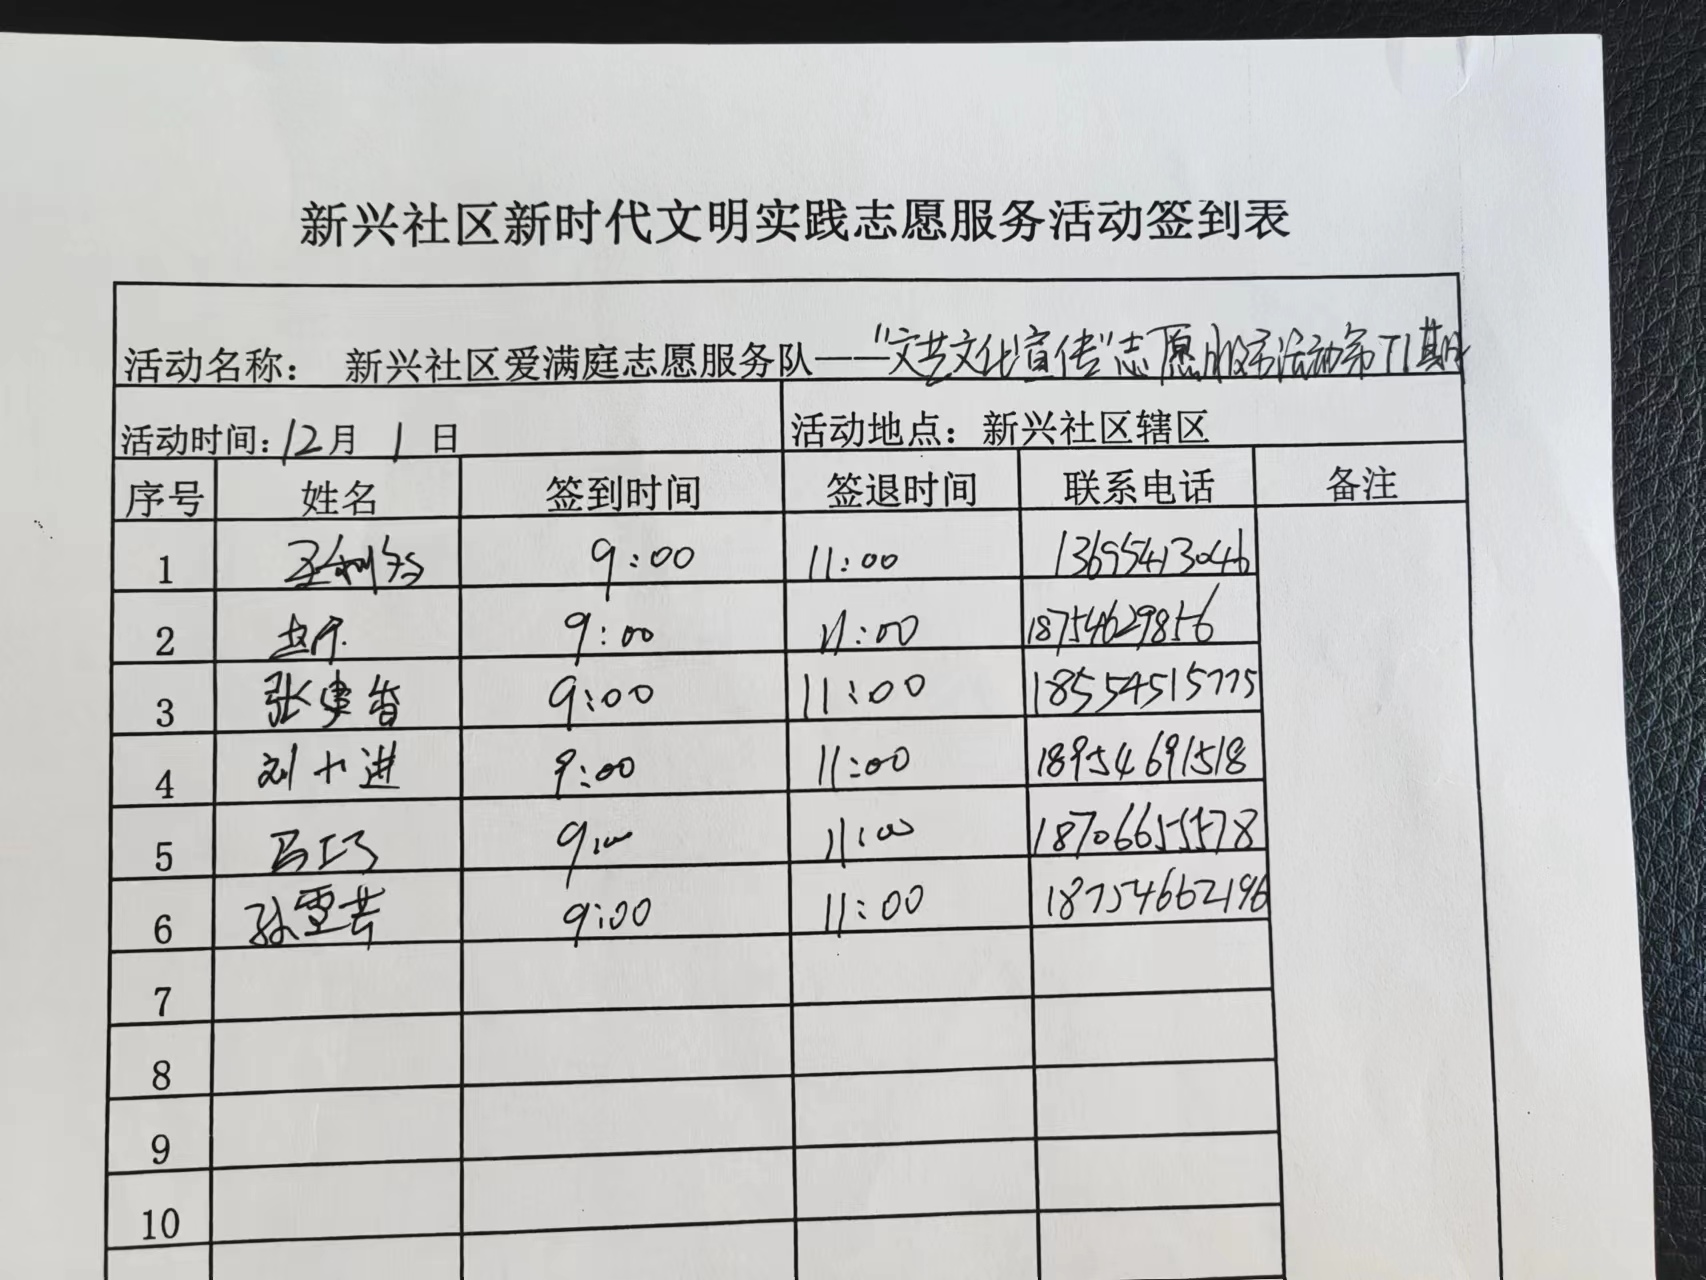 新兴社区新时代文明实践志愿服务活动签到表
活动名称： 新兴社区爱满庭志愿服务队——“文艺文化宣传”志愿服务活动第71期
活动时间：12月 1 日 活动地点：新兴社区辖区
序号 姓名 签到时间 签退时间 联系电话 备注
1 9:00 11:00 13695413046
2 9:00 11:00 18754629856
3 张建香 9:00 11:00 18554515775
4 刘十进 9:00 11:00 18954691518
5 马巧 9:00 11:00 18706655578
6 孙雪芸 9:00 11:00 18754662196
7
8
9
10